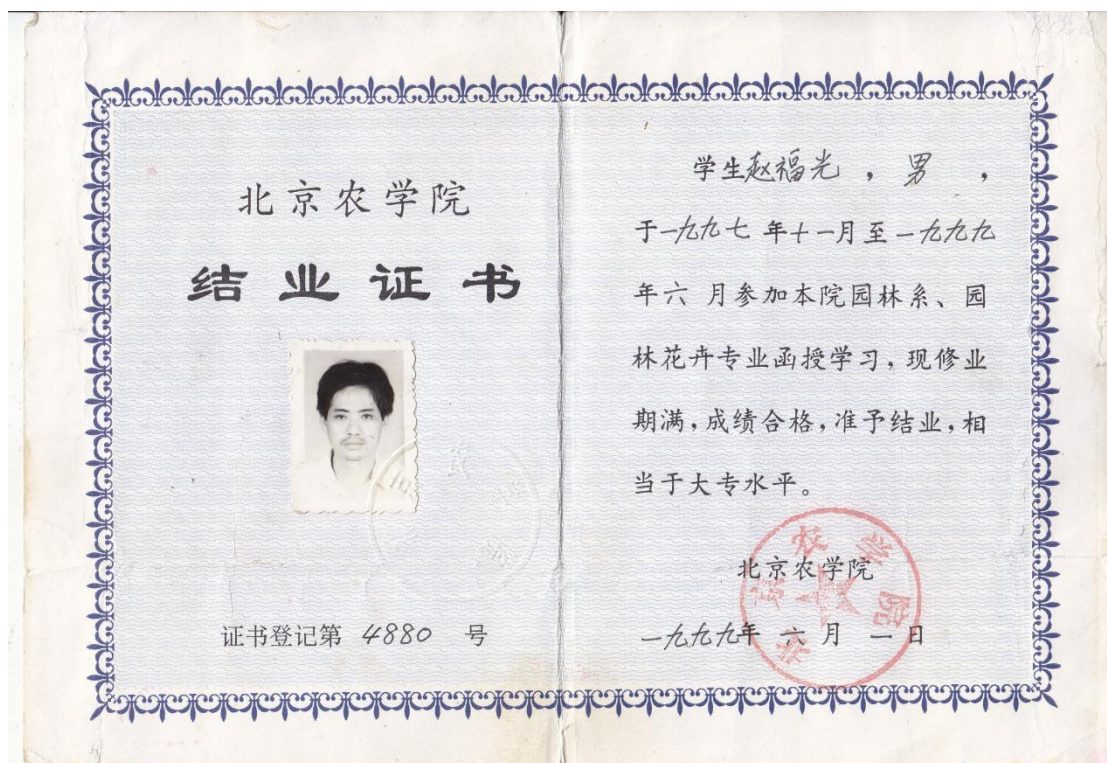 北京农学院
结业证书
证书登记第 4880 号
学生赵福光，男，
于一九九七年十一月至一九九九
年六月参加本院园林系、园
林花卉专业函授学习，现修业
期满，成绩合格，准予结业，相
当于大专水平。
北京农学院
一九九九年六月一日
北京农学院